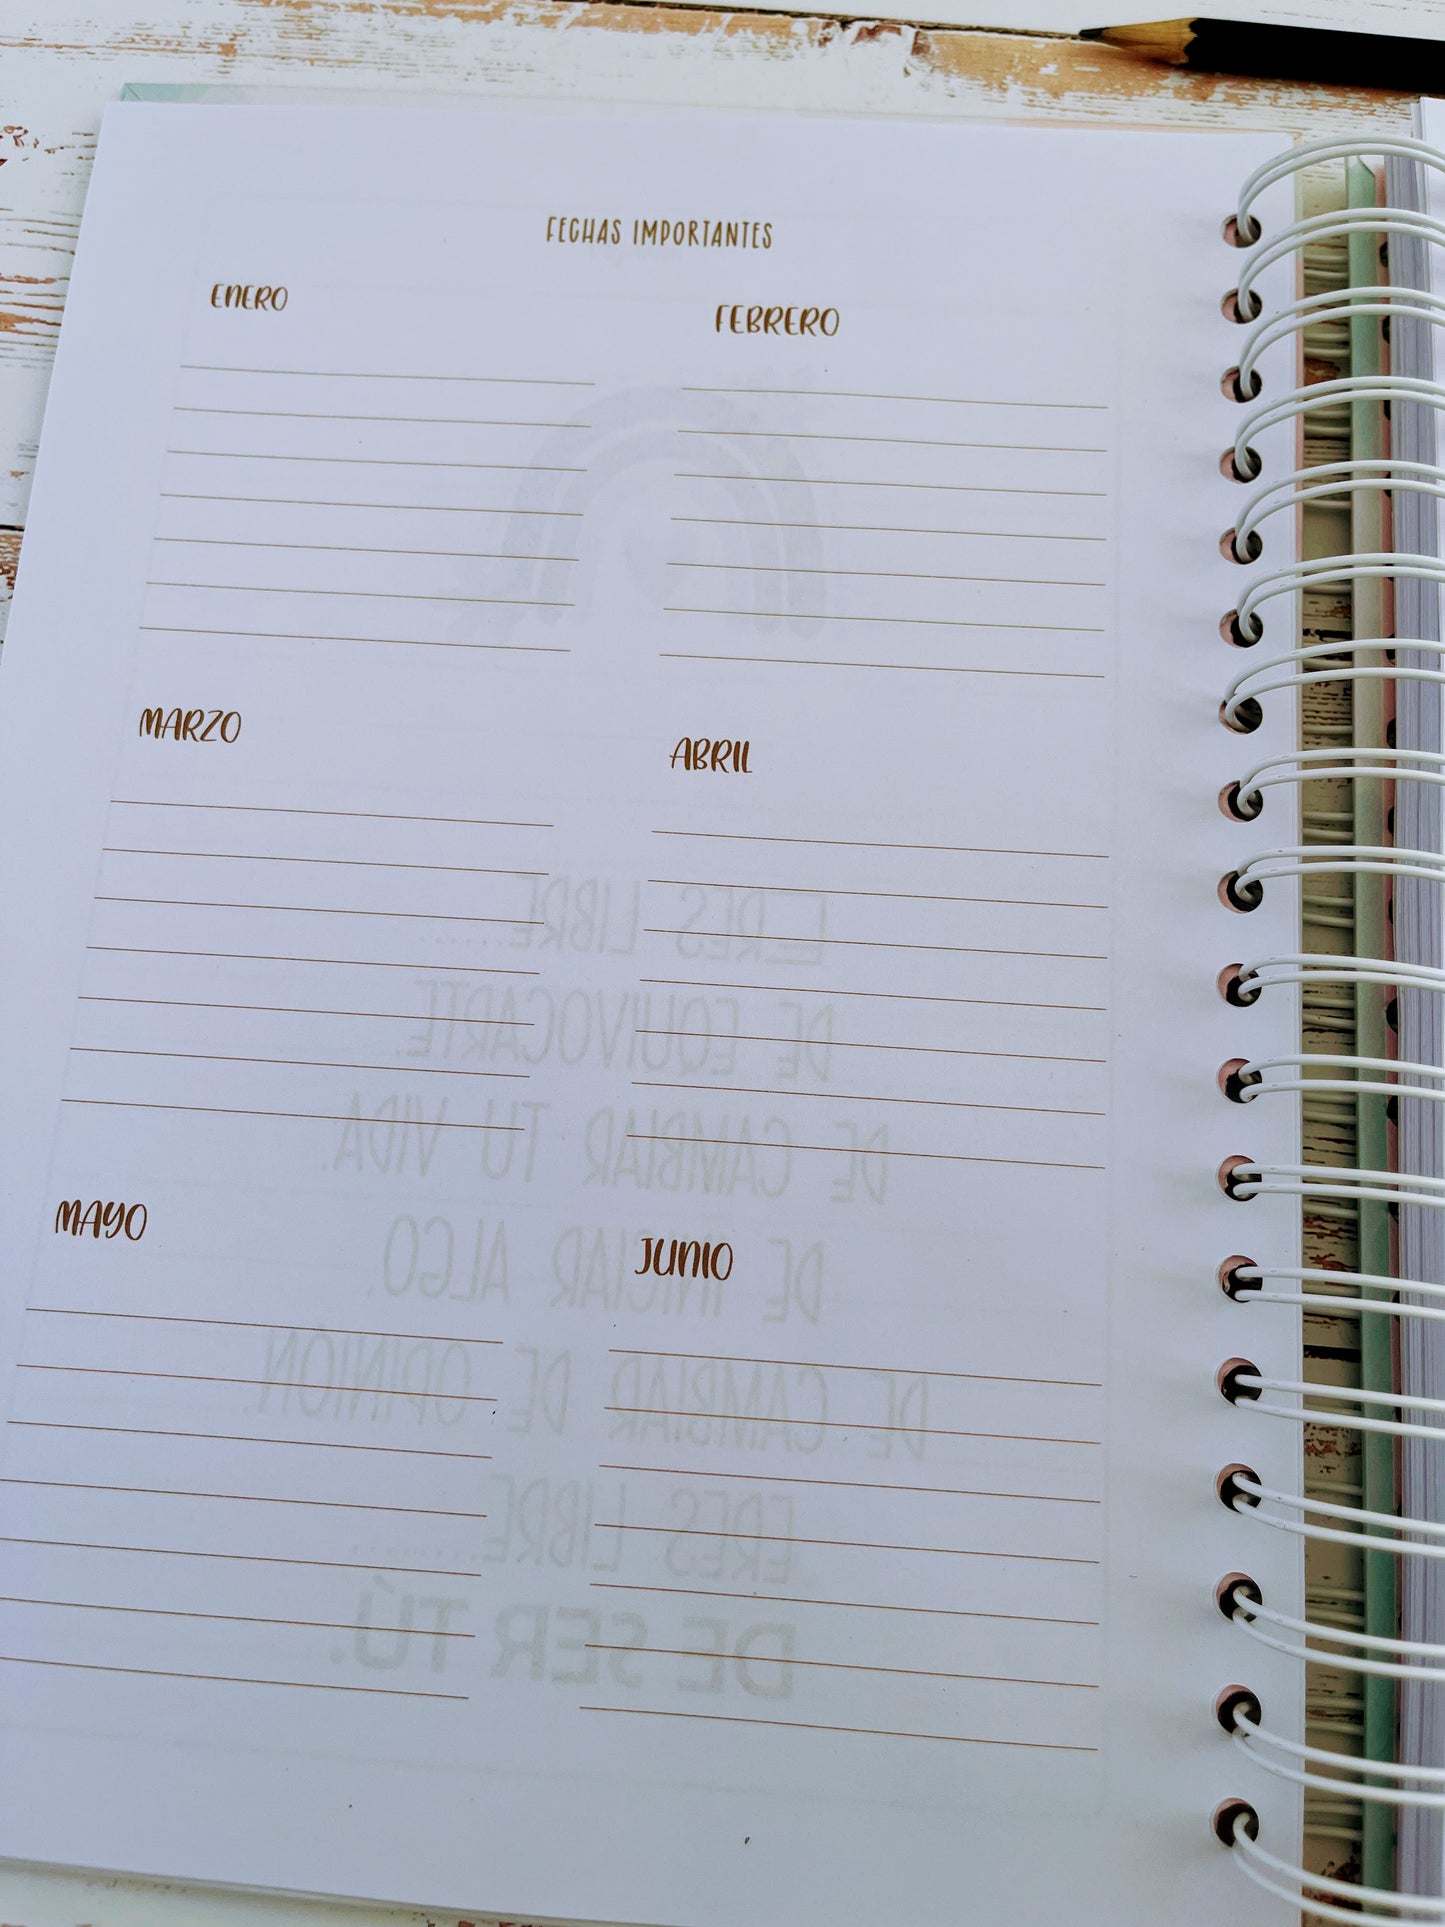 FECHAS IMPORTANTES
ENERO
FEBRERO
MARZO
ABRIL
MAYO
JUNIO
ERES LIBRE......
DE EQUIVOCARTE.
DE CAMBIAR TU VIDA.
DE INICIAR ALGO.
DE CAMBIAR DE OPINIÓN.
ERES LIBRE........
DE SER TÚ.